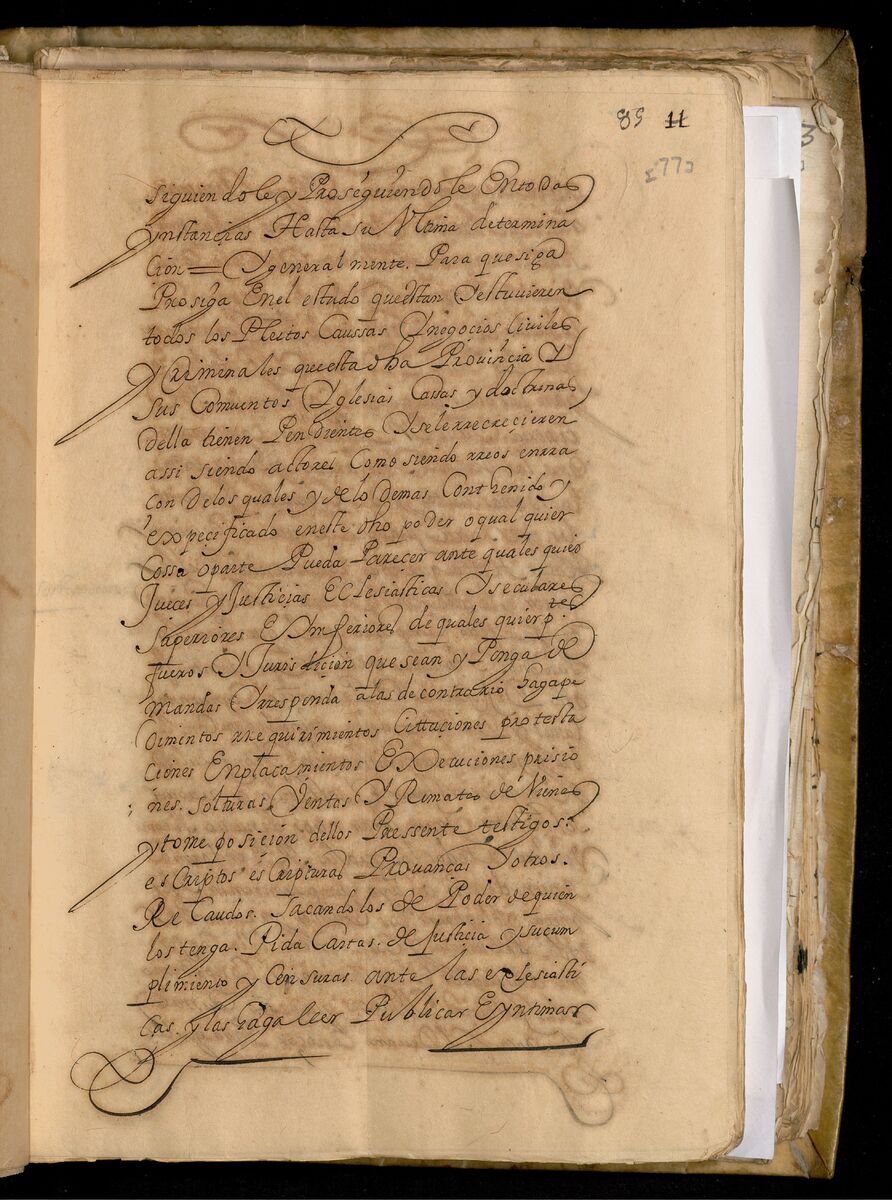 85 11
277
siguiendole y Prosėguiendole En todas
ynstancias Hasta su Vltima determina
cion = Y general mente. Para que siga
Prosiga En el estado questan Y estuvieren
todos los Pleitos Caussas Y negocios Civiles
y Criminales que esta dha Provincia Y
sus Comventos Yglesias Cassas y doctrinas
della tienen Pendientes Y se le rrecrecieren
assi siendo actores Como siendo rreos en rra
con De los quales y de lo demas Conthenido y
expecificado en este dho poder o qual quier
Cossa o parte Pueda Parecer ante quales quier
Jueces y Justicias Eclesiasticas Y seculares
Superiores E Ynferiores de quales quier ptes.
fueros Y Jurisdicion que sean y Ponga de
mandas Y rresponda a las de contrario haga pe
dimentos rrequirimientos Cittaciones protesta
ciones Enplacamientos Execuciones prisio
nes. solturas Ventas Y Remates de Vienes
y tome posicion dellos Pressente testigos.
escriptos escripturas Provancas Y otros.
Recaudos. sacandolos de Poder de quien
los tenga. Pida Cartas. de justicia y su cum
plimiento y Censuras ante las eclesiasti
cas. y las haga leer Publicar E yntimar